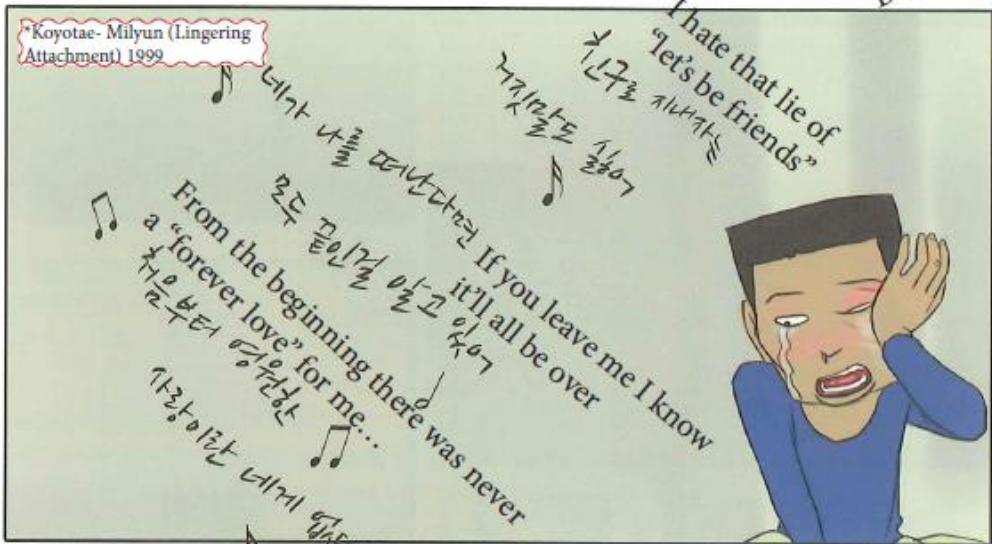 *Koyotae- Milyun (Lingering
Attachment) 1999
I hate that lie of
"let's be friends"
친구로 지내자는
거짓말도 싫어
네가 나를 떠난다면
모두 끝인걸 알고 있어
If you leave me I know
it'll all be over
From the beginning there was never
a "forever love" for me...
처음부터 영원한
사랑이란 네게